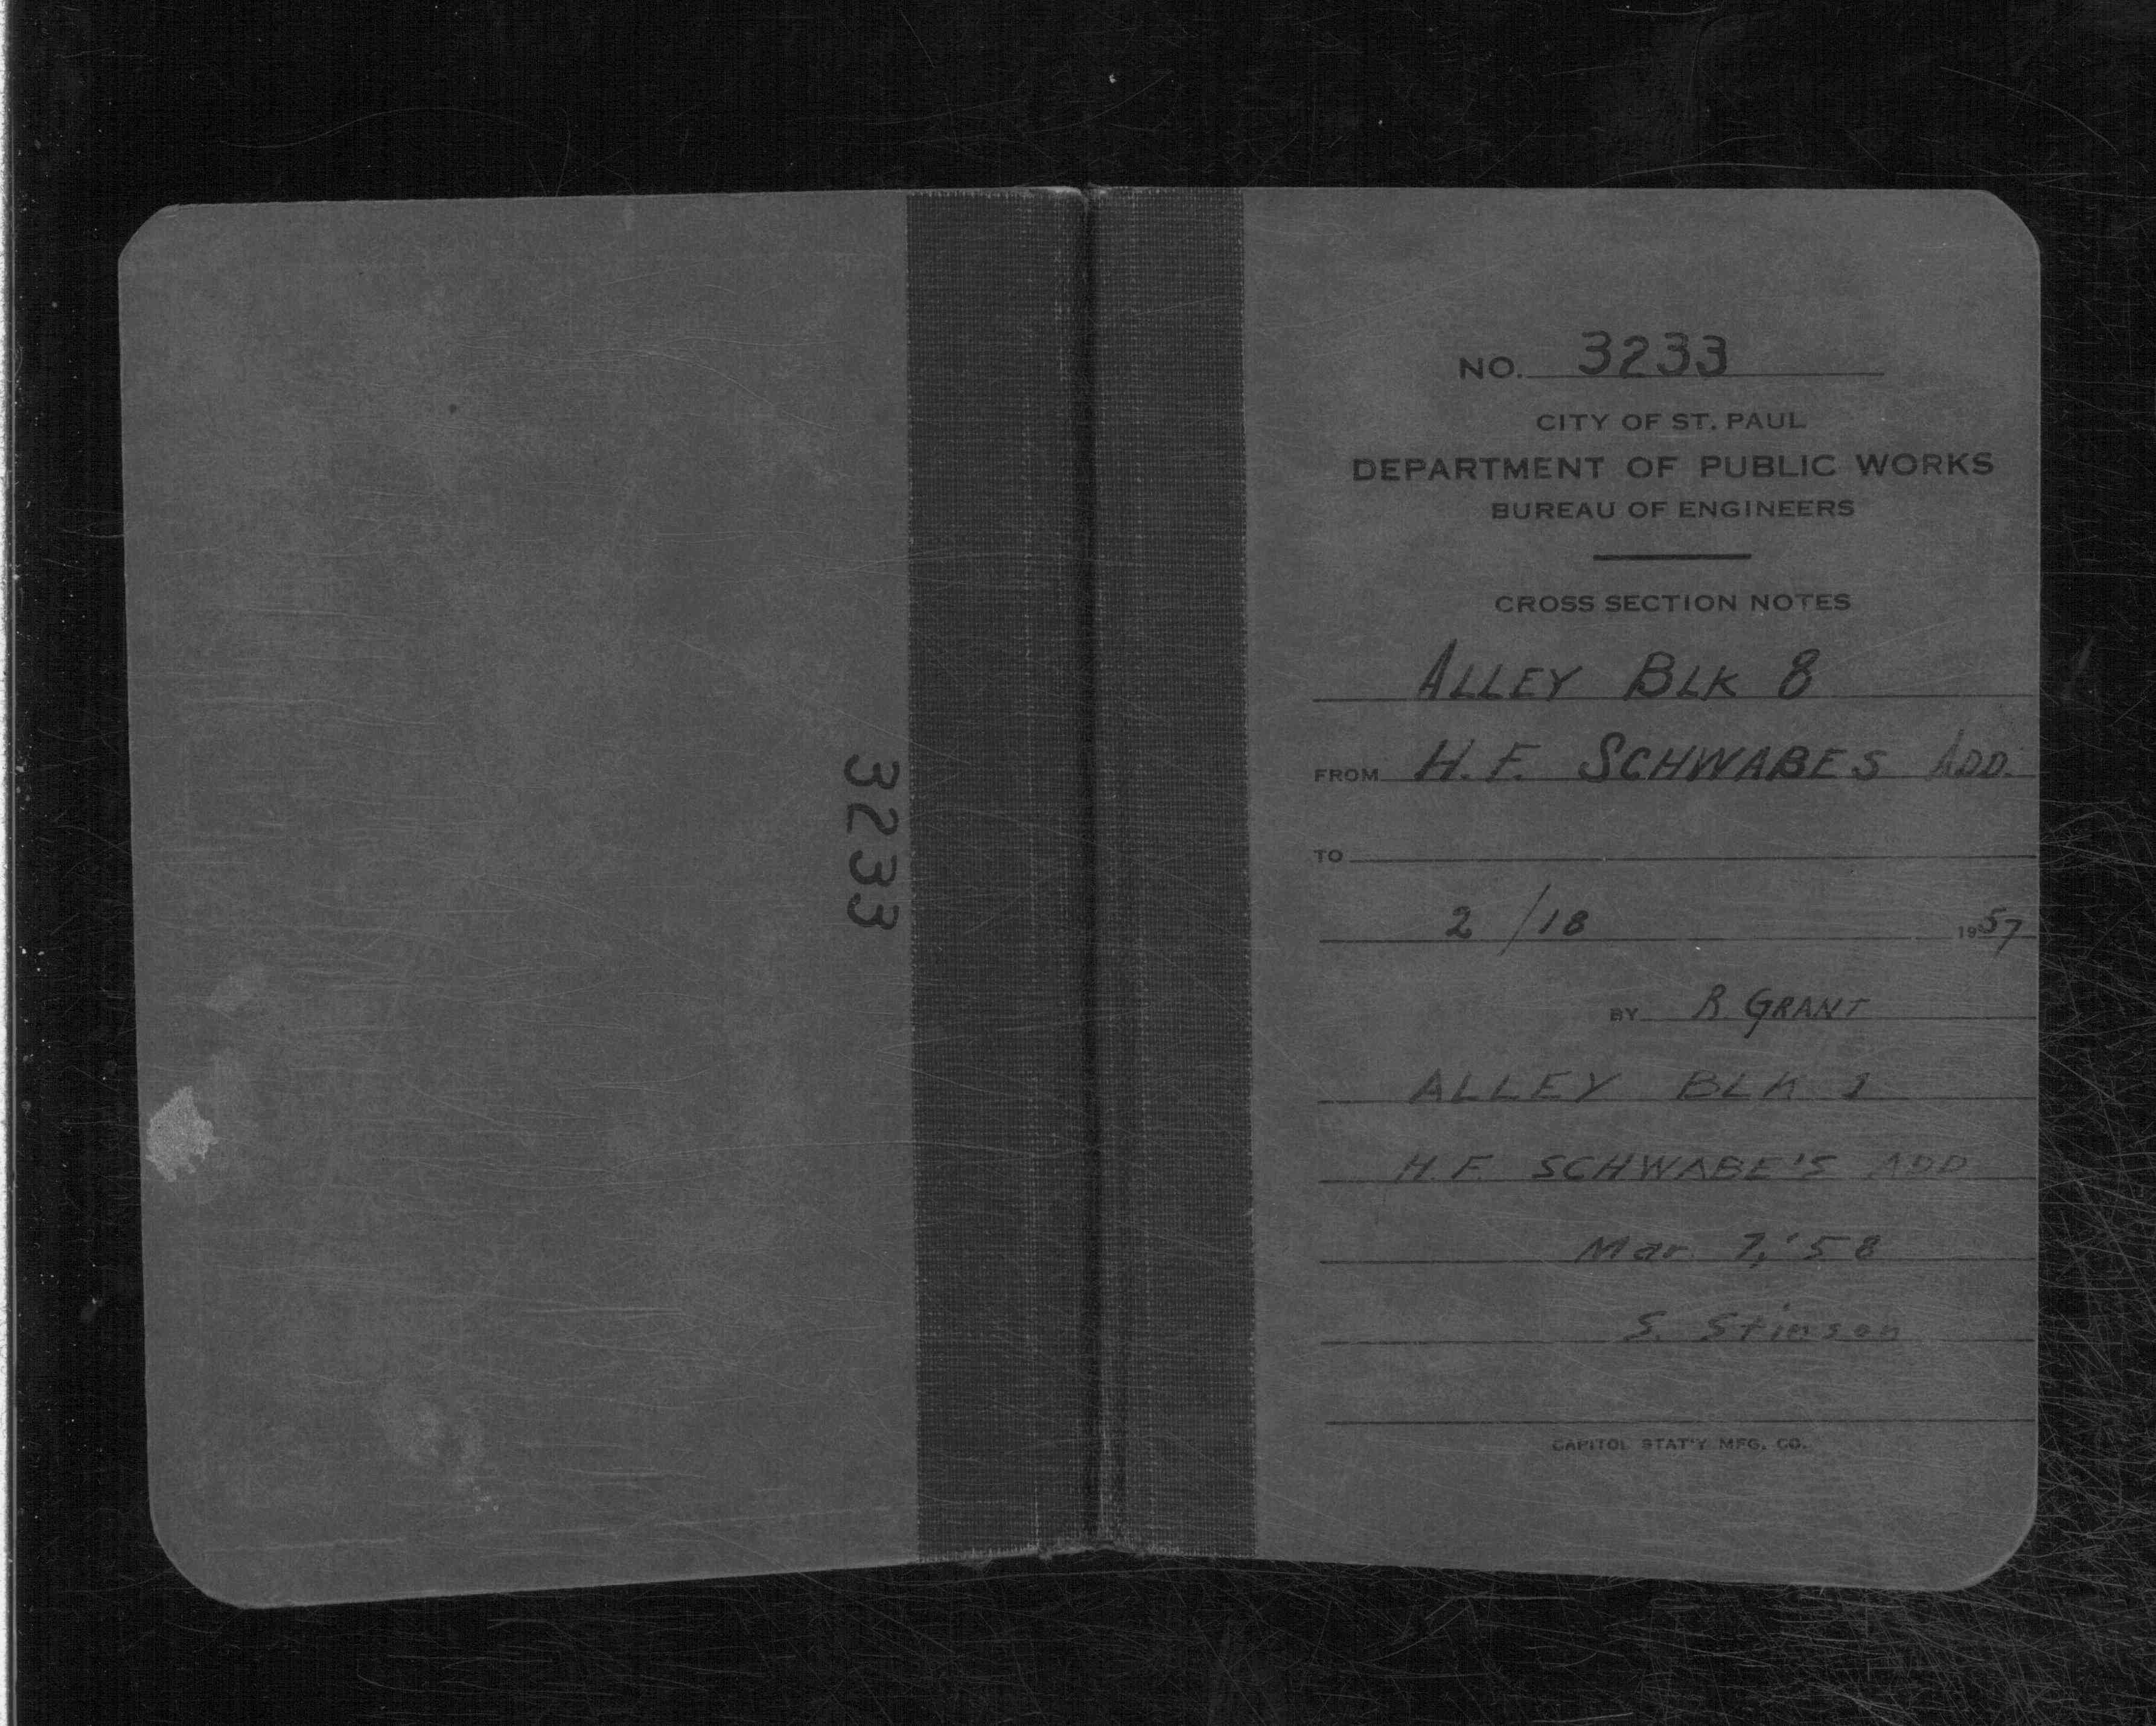 3233
NO. 3233
CITY OF ST. PAUL
DEPARTMENT OF PUBLIC WORKS
BUREAU OF ENGINEERS
CROSS SECTION NOTES
ALLEY BLK 8
FROM H. F. SCHWABES ADD.
TO
2/18 1957
BY R GRANT
ALLEY BLK 1
H. F. SCHWABE'S ADD
Mar 7, '58
S. Stinson
CAPITOL STAT'Y MFG. CO.